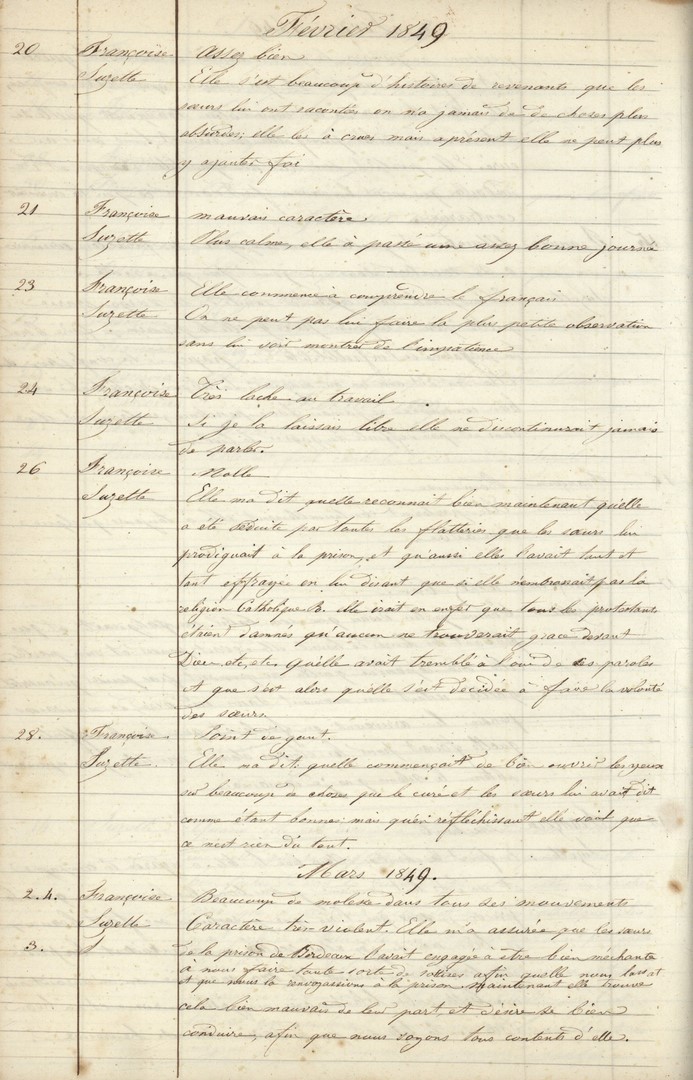 Février 1849
20 Françoise assez bien
Suzette Elle s'est beaucoup d'histoires de revenants que les
sœurs lui ont racontées on n'a jamais de choses plus
absurdes; elle les à crues mais apresent elle ne peut plus
y ajouter foi
21 Françoise mauvais caractère.
Suzette Plus calme, elle à passé une assez bonne journée
23 Françoise Elle commence à comprendre le français
Suzette On ne peut pas lui faire la plus petite observation
sans lui voir montrer de l'impatience
24 Françoise Très lache au travail.
Suzette Si je la laissais libre elle ne discontinurait jamais
de parler.
26 Françoise Molle
Suzette Elle ma dit quelle reconnait bien maintenant qu'elle
a été séduite par toutes les flatteries que les sœurs lui
prodiguait à la prison, et qu'aussi elles l'avait tant et
tant effrayée en lui disant que si elle nembrassait pas la
religion Catholique R. elle irait en enfer que tous les protestants
étaient damnés qu'aucun ne trouverait grace devant
Dieu etc, etc. quelle avait tremblé à l'ouie de ces paroles
et que s'est alors quelle s'est décidée à faire la volonté
des sœurs.
28. Françoise Point de gout.
Suzette. Elle ma dit quelle commençait de bien ouvrir les yeux
sur beaucoup de choses que le curé et les sœurs lui avait dit
comme étant bonnes: mais qu'en réfléchissant elle voit que
ce nest rien du tout.
Mars 1849.
2.4. Françoise Beaucoup de molesse dans tous ses mouvements
Suzette Caractère très violent. Elle m'a assurée que les sœurs
3. de la prison de Bordeaux l'avait engagée à être bien méchante
a nous faire toute sorte de sotises afin quelle nous lassat
et que nous la renvoyassions à la prison, maintenant elle trouve
cela bien mauvais de leur part, et désire se bien
conduire, afin que nous soyons tous contents d'elle.